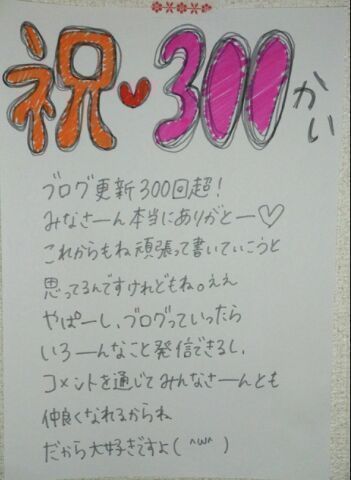 祝♥300かい
ブログ更新300回超!
みなさーん本当にありがとー♡
これからもね頑張って書いていこうと
思ってるんですけれどもね。ええ
やぱーし、ブログっていったら
いろーんなこと発信できるし、
コメントを通じてみんなさーんとも
仲良くなれるからね
だから大好きですよ(^ω^)